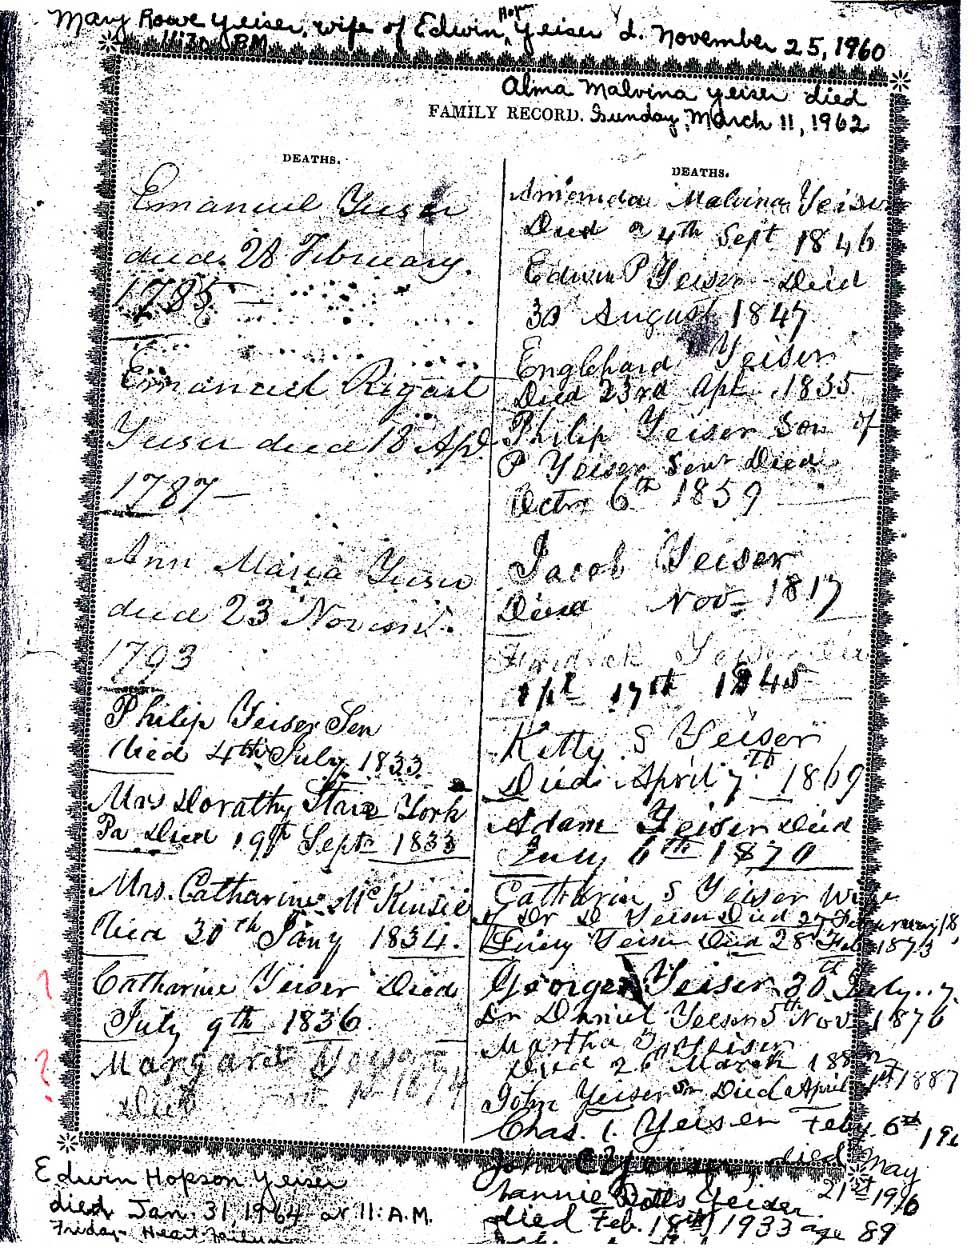 Mary Rowe Yeiser, wife of Edwin Hopson Yeiser d. November 25, 1960
11:30 P.M.
Alma Malvina Yeiser died
FAMILY RECORD. Sunday, March 11, 1962
DEATHS.
Emanuel Yeiser
died 28 February
1785
Emanuel Rigart
Yeiser died 18 Apl
1787
Ann Maria Yeiser
died 23 Novem.
1793
Philip Yeiser Sen
died 4th July 1833
Mrs Dorathy Stare York
Pa Died 19th Sept 1833
Mrs. Catharine McKinsie
Died 30th Jany 1834.
? Catharine Yeiser Died
July 9th 1836
? Margaret Yeiser
Died
DEATHS.
Amenda Malvina Yeiser
Died 24th Sept 1846
Edwin P Yeiser Died
30 August 1847
Englehard Yeiser
Died 23rd Apl. 1835
Philip Yeiser Son of
P Yeiser Senr Died
Octr 6th 1859
Jacob Yeiser
Died Nov 1817
Fredrick Yeiser
17th 1845
Kitty S Yeiser
Died April 7th 1869
Adam Yeiser Died
July 6th 1870
Catharin S Yeiser Wife
of Dr D Yeiser Died 27 February 18
Yeiser Died 28 Feb 1873
George Yeiser 30th July
Dr Daniel Yeiser 5th Nov 1876
Martha Yeiser
Died 26th March
John Yeiser Sr Died April 1st 1887
Chas. Yeiser Feby. 6th
John Yeiser died May
21st 1916
Nannie Botts Yeiser
died Feb. 18th, 1933 age 89
Edwin Hopson Yeiser
died Jan. 31, 1964 at 11:A.M.
Friday- Heart failure